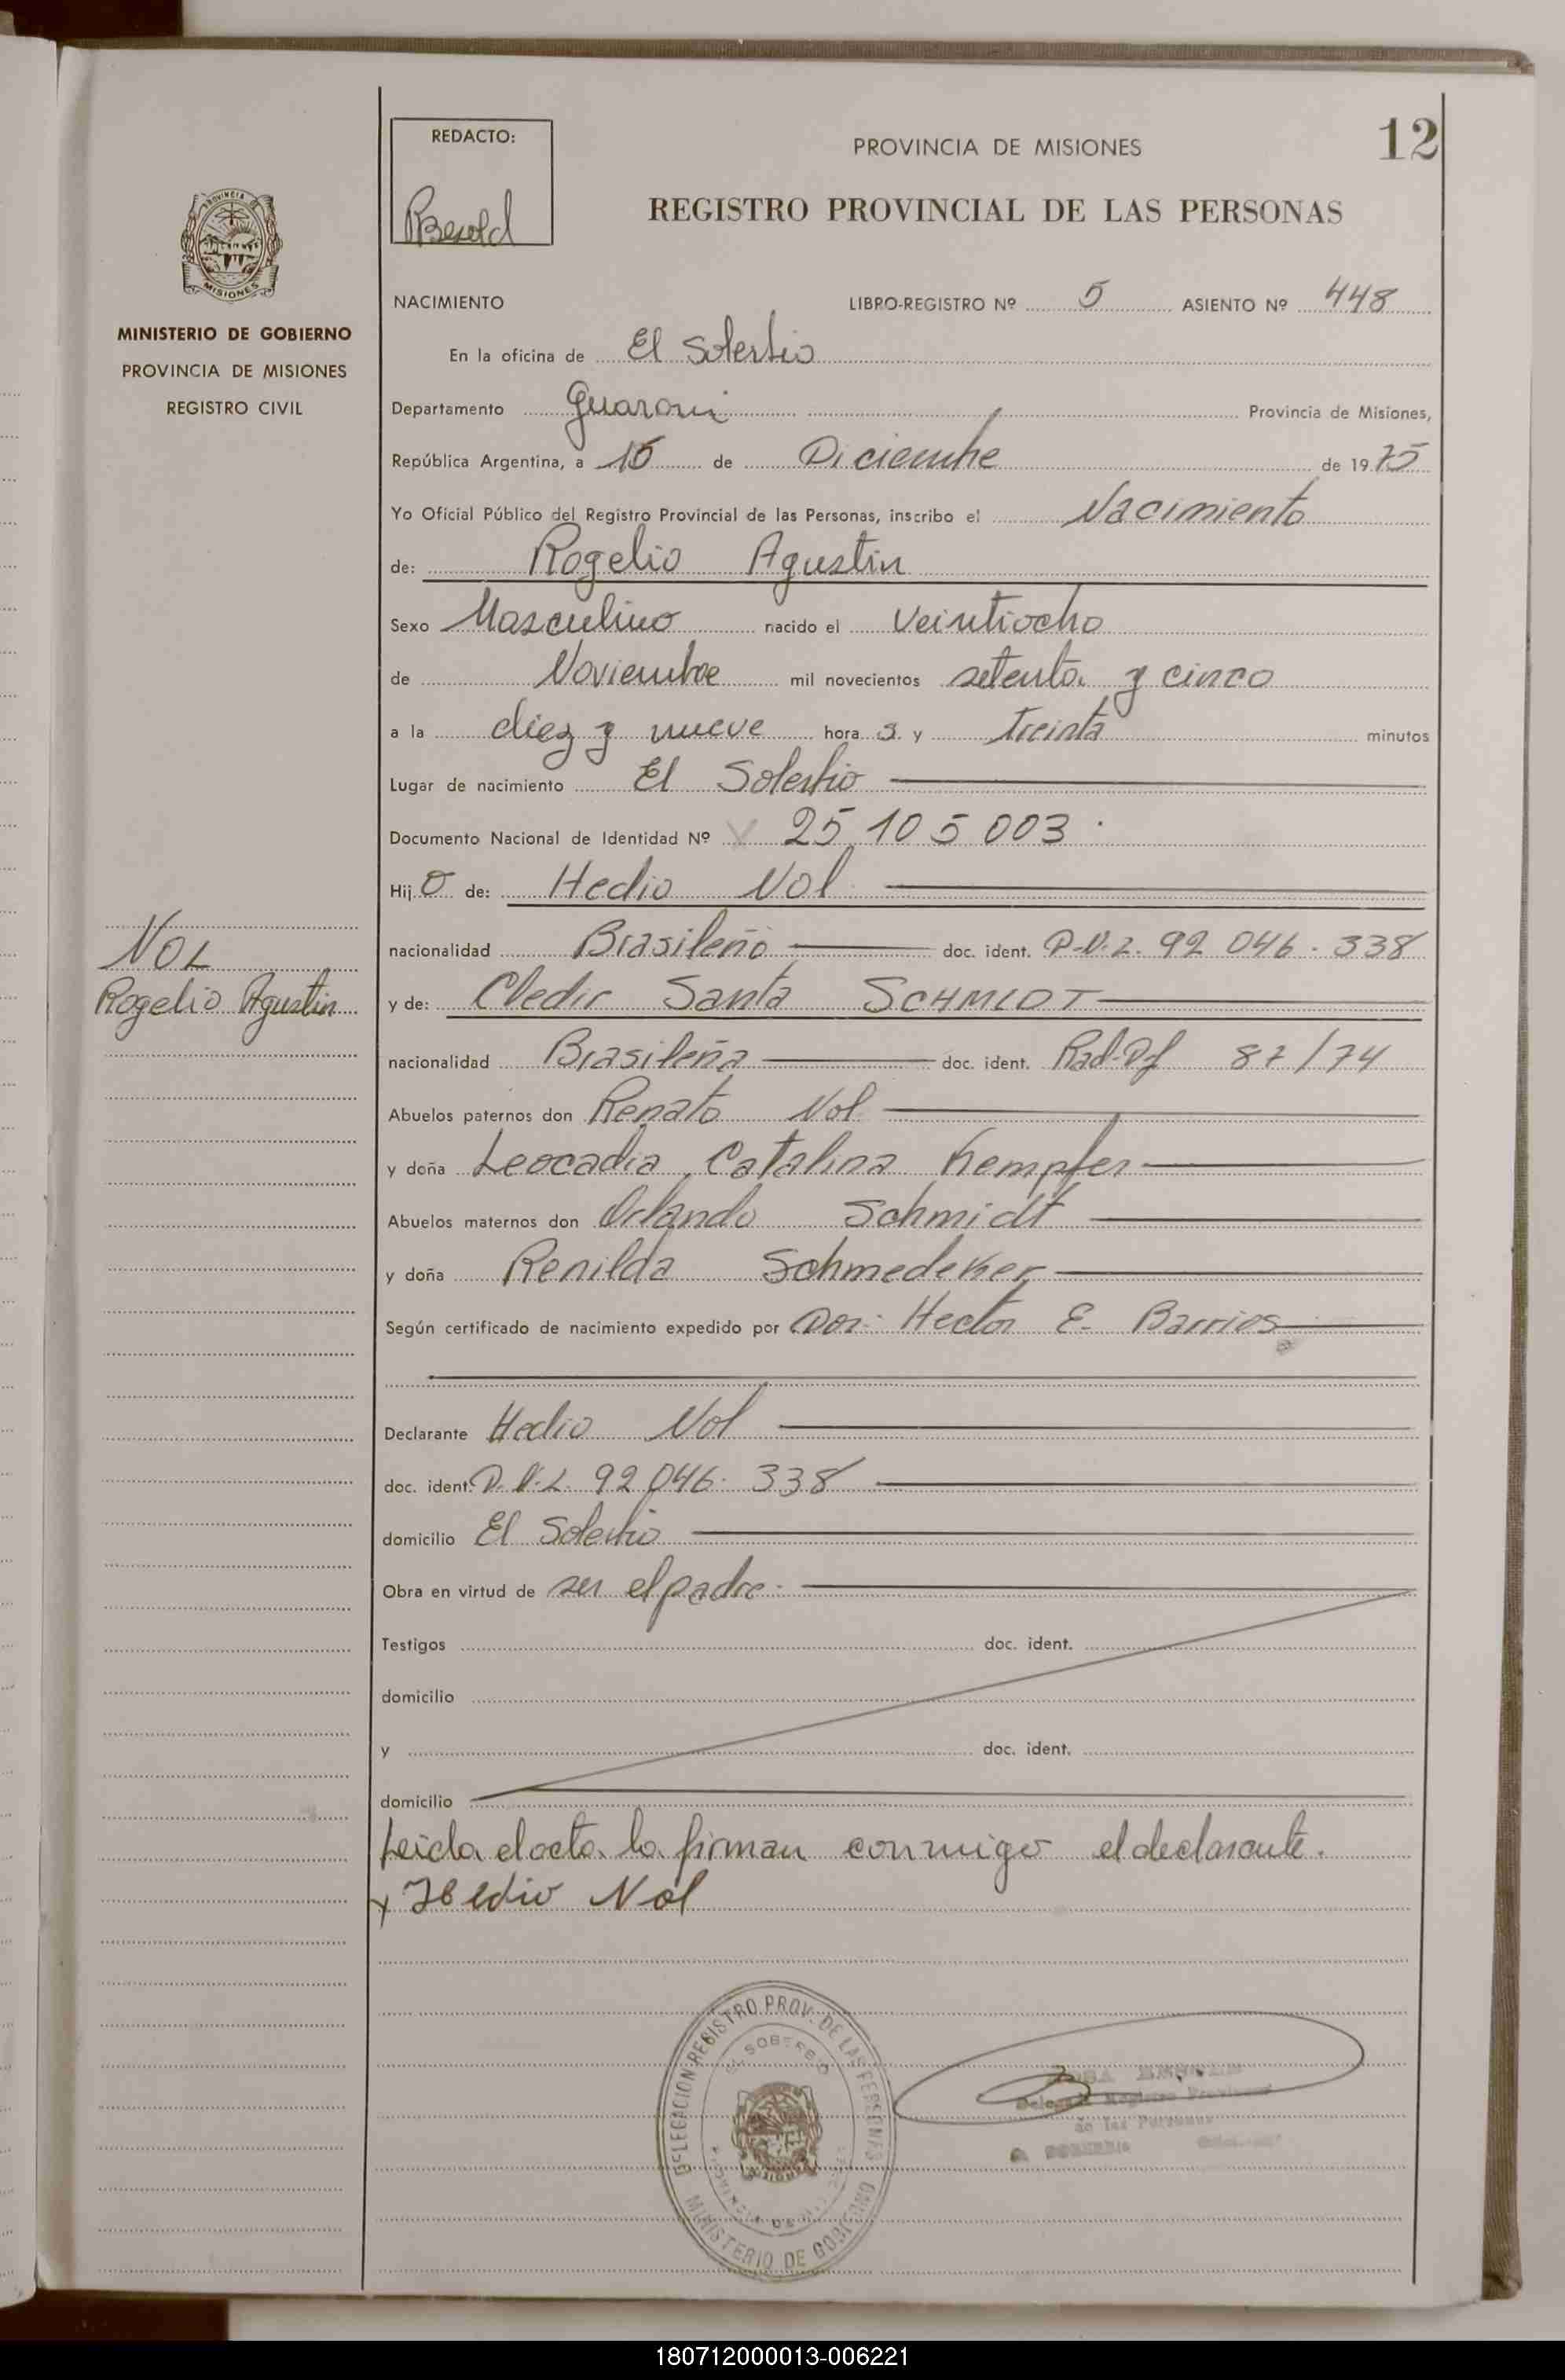 12
REDACTO:
PROVINCIA DE MISIONES
REGISTRO PROVINCIAL DE LAS PERSONAS
PROVINCIA DE
MISIONES
MINISTERIO DE GOBIERNO
PROVINCIA DE MISIONES
REGISTRO CIVIL
NACIMIENTO LIBRO-REGISTRO Nº 5 ASIENTO Nº 448
En la oficina de El Soberbio
Departamento Guarani Provincia de Misiones,
República Argentina, a 15 de Diciembre de 1975
Yo Oficial Público del Registro Provincial de las Personas, inscribo el Nacimiento
de: Rogelio Agustin
Sexo Masculino nacido el Veintiocho
de Noviembre mil novecientos setenta y cinco
a la diez y nueve hora s y Treinta minutos
Lugar de nacimiento El Soberbio
Documento Nacional de Identidad Nº 25.105.003
Hijo de: Hedio Nol
nacionalidad Brasileño doc. ident. D.N.I. 92.046.338
NOL
Rogelio Agustin
y de: Cledir Santa SCHMIDT
nacionalidad Brasileña doc. ident. Rad.Df 87/74
Abuelos paternos don Renato Nol
y doña Leocadia Catalina Kempfer
Abuelos maternos don Orlando Schmidt
y doña Renilda Schmedeker
Según certificado de nacimiento expedido por Dor. Hector E. Barrios
Declarante Hedio Nol
doc. ident. D.N.I. 92.046.338
domicilio El Soberbio
Obra en virtud de ser el padre.
Testigos doc. ident.
domicilio
y doc. ident.
domicilio
Leida el acta la firman conmigo el declarante.
x Hedio Nol
DELEGACION REGISTRO PROV. DE LAS PERSONAS
EL SOBERBIO
PROVINCIA DE MISIONES
MINISTERIO DE GOBIERNO
Registro Provincial
de las Personas
180712000013-006221